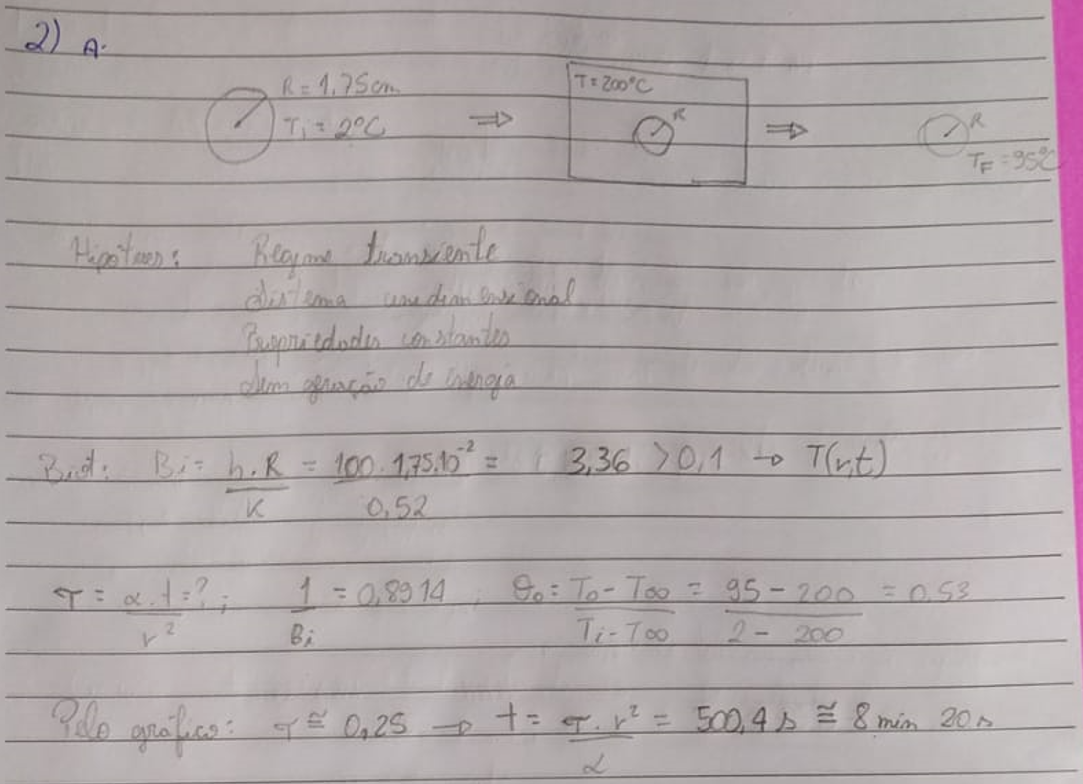 2) A.
R = 1,75cm
Ti = 2°C
⇒
T = 200°C
R
⇒
R
TF = 95°C
Hipóteses: Regime transiente
Sistema unidimensional
Propriedades constantes
Sem geração de energia
Biot: Bi = h.R/K = 100.1,75.10⁻²/0,52 = 3,36 > 0,1 → T(r,t)
τ = α.t/r² = ? ; 1/Bi = 0,8914 ; θ₀ = T₀ - T∞/Ti - T∞ = 95 - 200/2 - 200 = 0,53
Pelo gráfico: τ ≅ 0,25 → t = τ.r²/α = 500,4 s ≅ 8 min 20 s